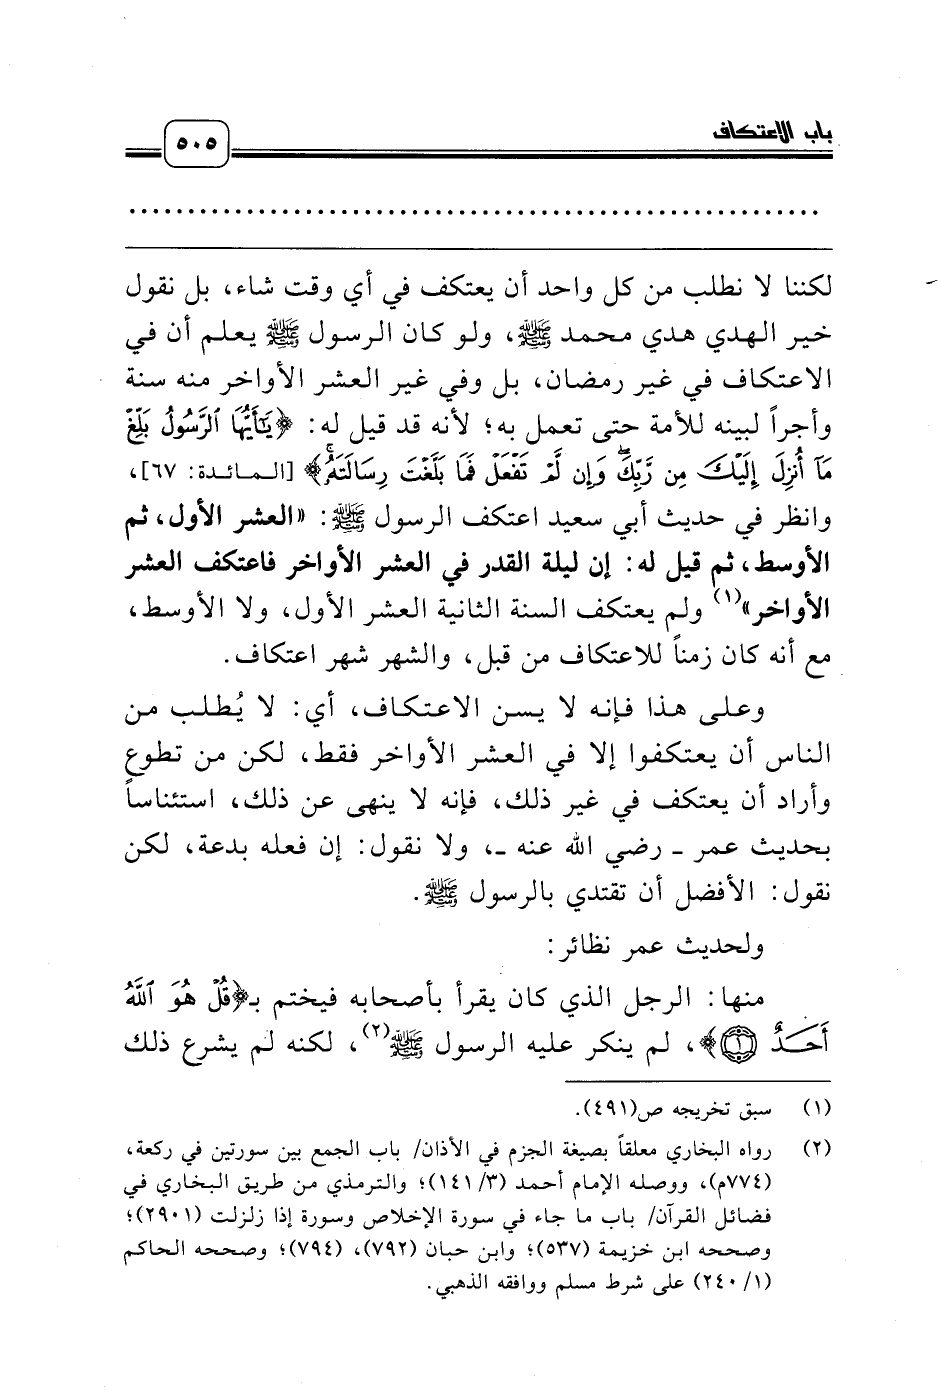 باب الاعتكاف
٥٠٥
لكننا لا نطلب من كل واحد أن يعتكف في أي وقت شاء، بل نقول
خير الهدي هدي محمد ﷺ، ولو كان الرسول ﷺ يعلم أن في
الاعتكاف في غير رمضان، بل وفي غير العشر الأواخر منه سنة
وأجراً لبينه للأمة حتى تعمل به؛ لأنه قد قيل له: ﴿يَٰٓأَيُّهَا ٱلرَّسُولُ بَلِّغْ
مَآ أُنزِلَ إِلَيْكَ مِن رَّبِّكَۖ وَإِن لَّمْ تَفْعَلْ فَمَا بَلَّغْتَ رِسَالَتَهُۥۚ﴾ [المائدة: ٦٧]،
وانظر في حديث أبي سعيد اعتكف الرسول ﷺ: «العشر الأول، ثم
الأوسط، ثم قيل له: إن ليلة القدر في العشر الأواخر فاعتكف العشر
الأواخر»(١) ولم يعتكف السنة الثانية العشر الأول، ولا الأوسط،
مع أنه كان زمناً للاعتكاف من قبل، والشهر شهر اعتكاف.
وعلى هذا فإنه لا يسن الاعتكاف، أي: لا يُطلب من
الناس أن يعتكفوا إلا في العشر الأواخر فقط، لكن من تطوع
وأراد أن يعتكف في غير ذلك، فإنه لا ينهى عن ذلك، استئناساً
بحديث عمر ـ رضي الله عنه ـ، ولا نقول: إن فعله بدعة، لكن
نقول: الأفضل أن تقتدي بالرسول ﷺ.
ولحديث عمر نظائر:
منها: الرجل الذي كان يقرأ بأصحابه فيختم بـ﴿قُلْ هُوَ ٱللَّهُ
أَحَدٌ ۝١﴾، لم ينكر عليه الرسول ﷺ(٢)، لكنه لم يشرع ذلك
(١) سبق تخريجه ص(٤٩١).
(٢) رواه البخاري معلقاً بصيغة الجزم في الأذان/ باب الجمع بين سورتين في ركعة،
(٧٧٤م)، ووصله الإمام أحمد (٣/ ١٤١)؛ والترمذي من طريق البخاري في
فضائل القرآن/ باب ما جاء في سورة الإخلاص وسورة إذا زلزلت (٢٩٠١)؛
وصححه ابن خزيمة (٥٣٧)؛ وابن حبان (٧٩٢)، (٧٩٤)؛ وصححه الحاكم
(١/ ٢٤٠) على شرط مسلم ووافقه الذهبي.